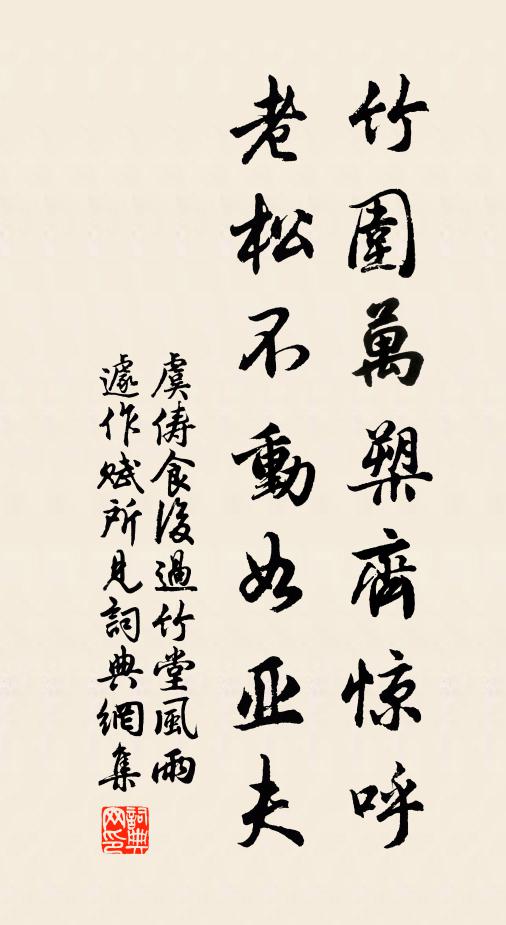 竹圍萬槊齊惊呼
老松不動如亚夫
虞俦食後過竹堂風雨
遽作賦所見詞典網集
詞典网印